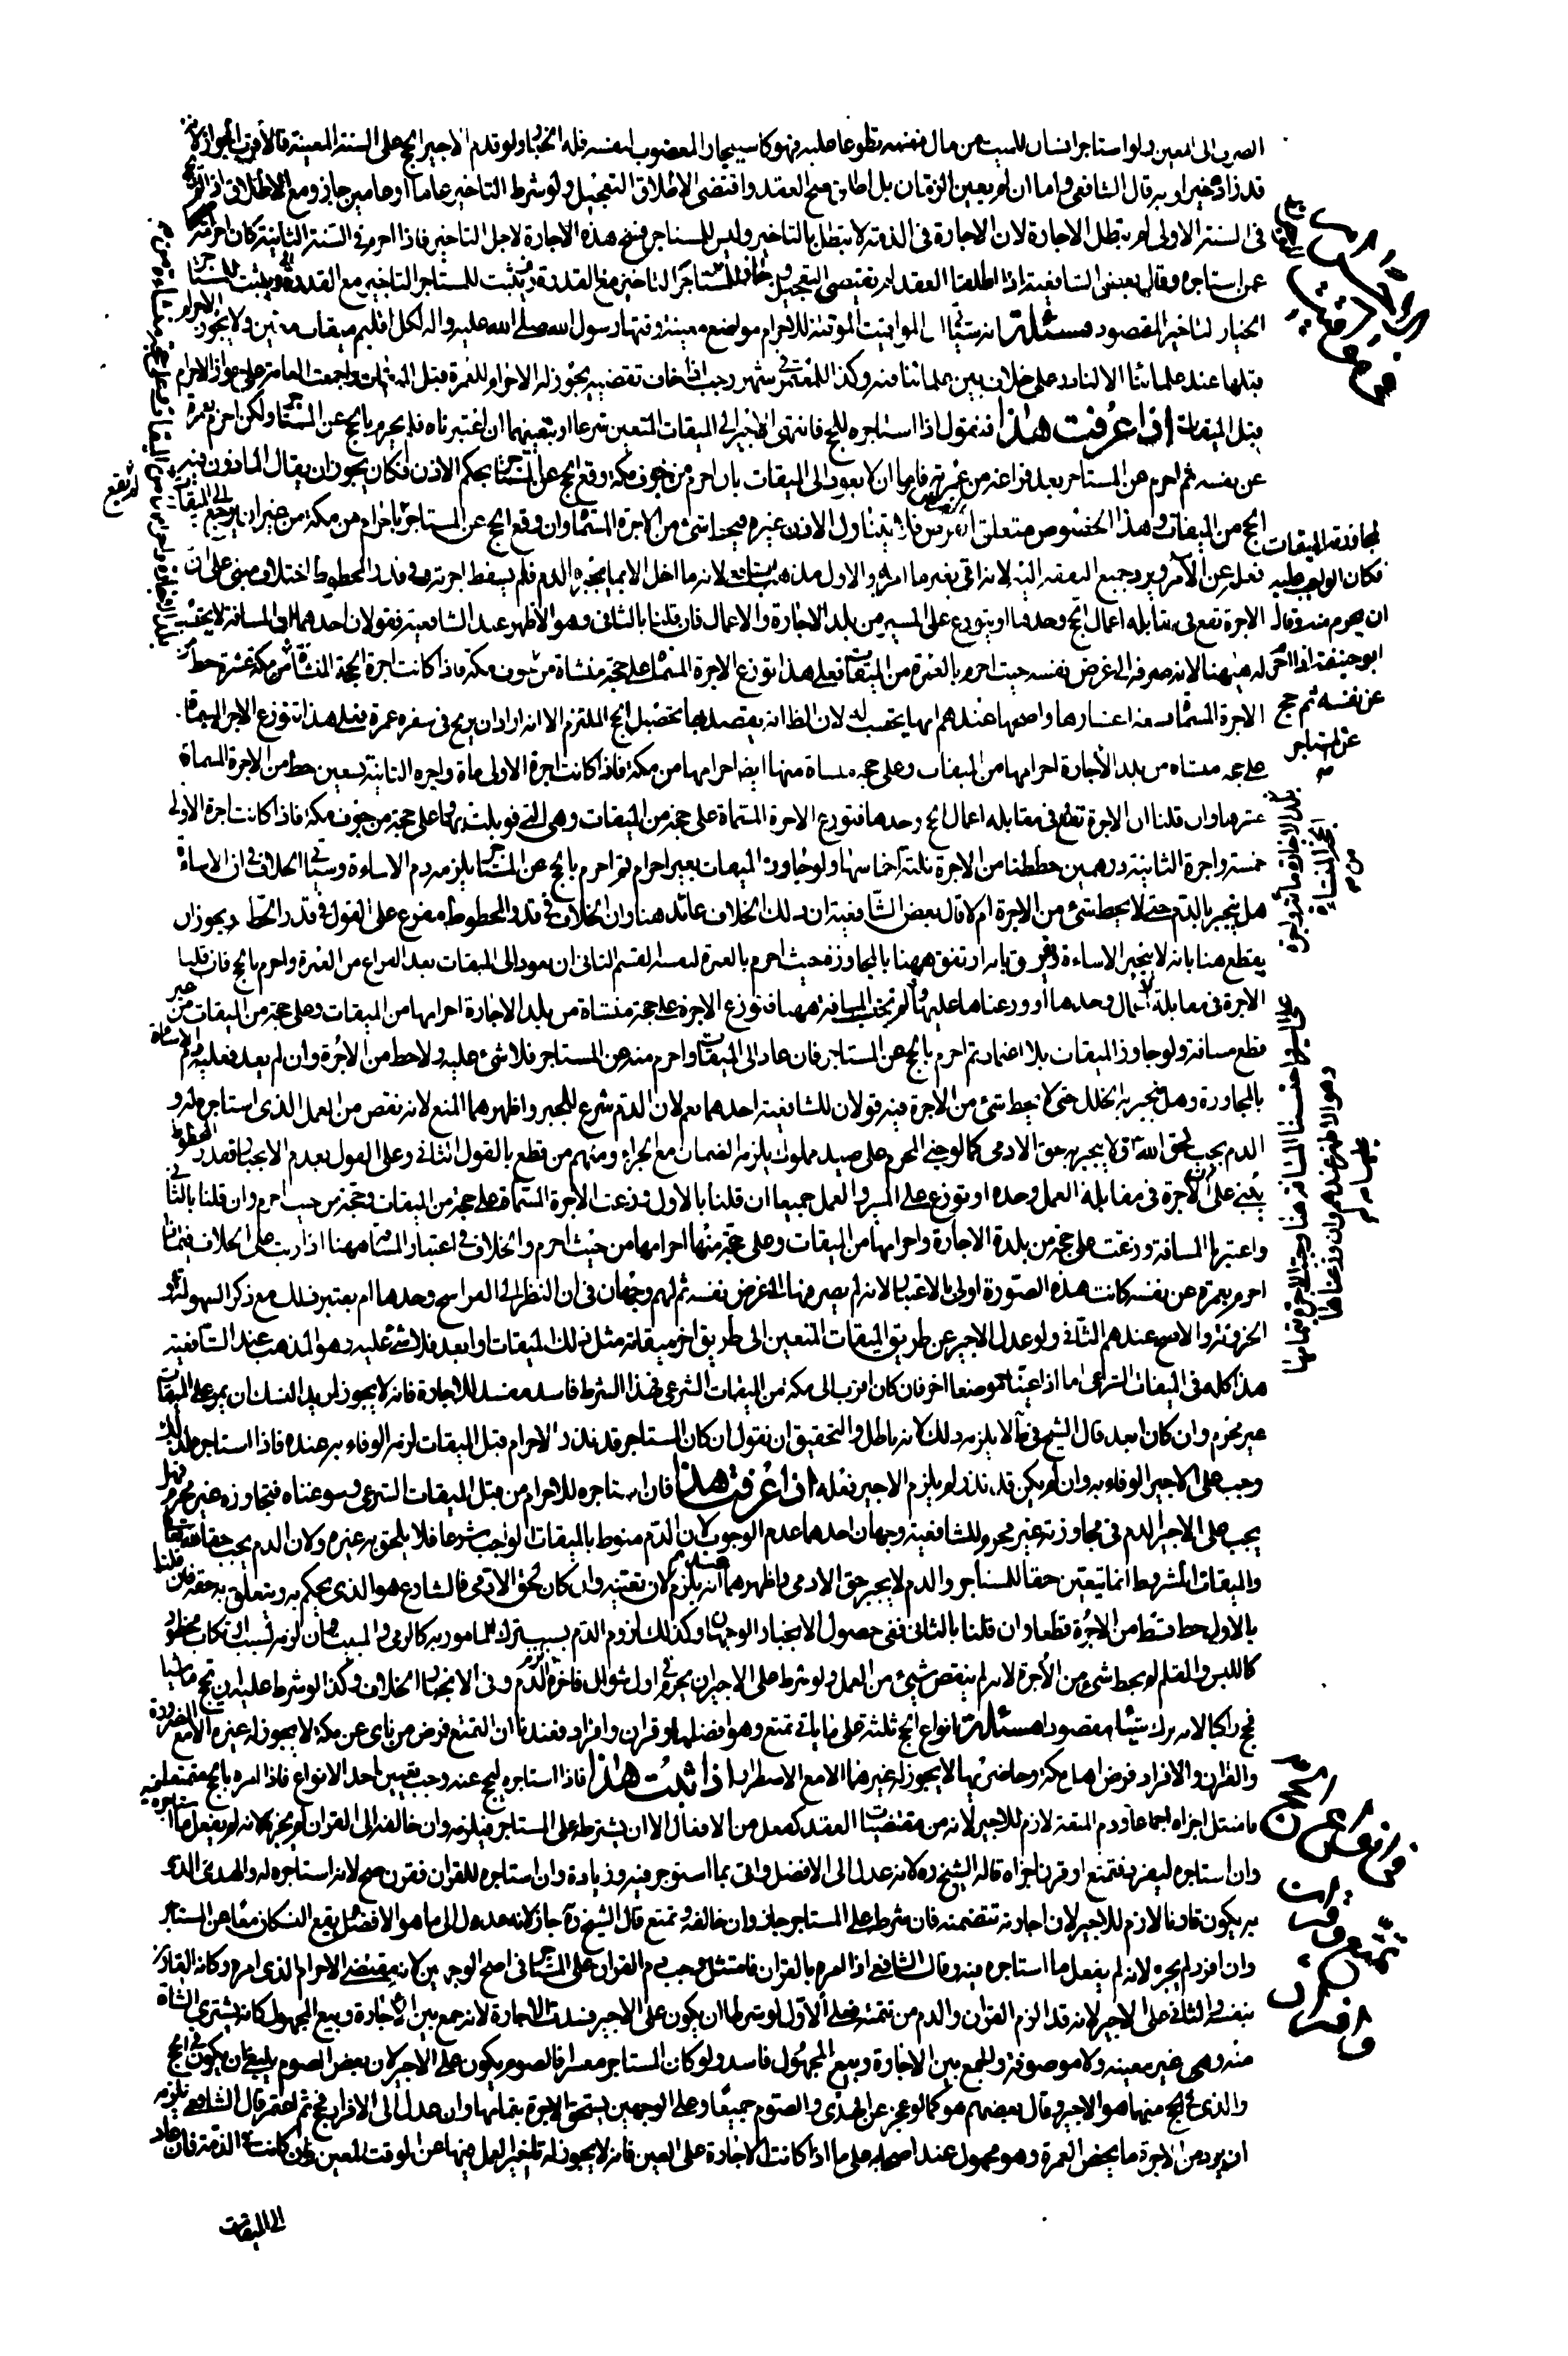 الصرف الى المعين ولو استاجر انسان للميت من مال نفسه تطوعا عليه فهو كاستيجار المعضوب لنفسه فله الخيار ولو قدم الاجير الحج على السنة المعينة فالأقرب الجواز لانه
قد زاده خيرا وبه قال الشافعي واما ان لم يعين الزمان بل اطلق صح العقد واقتضى الاطلاق التعجيل ولو شرط التاخير عاما او عامين جاز ومع الاطلاق اذا لم يحج
في السنة الاولى لم تبطل الاجارة لان الاجارة في الذمة لا تبطل بالتاخير وليس للمستاجر فسخ هذه الاجارة لاجل التاخير فاذا احرم في السنة الثانية كان احرامه
عمن استاجره وقال بعض الشافعية اذا اطلقا العقد لم يقتضى التعجيل وجاز للمستاجر التاخير مع القدرة ويثبت للمستاجر
الخيار لتاخير المقصود مسئلة قد ستيا ان المواقيت الموقتة للاحرام مواضع معينة وقتها رسول الله صلى الله عليه واله لكل اقليم ميقات معين ولا يجوز الاحرام
قبلها عند علمائنا الا لناذر على خلاف بين علمائنا فيه وكذا للمعتمر في شهر رجب اذا خاف تقضيه يجوز له الاحرام للعمرة قبل الميقات واجمعت العامة على جواز الاحرام
قبل الميقات اذا عرفت هذا فنقول اذا استاجره للحج فانتهى الاجير الى الميقات المتعين شرعا او بتعيينهما ان اعتبرناه فلم يحرم بالحج عن المستاجر ولكن احرم بعمرة
عن نفسه ثم احرم عن المستاجر بعد فراغه من عمرته فاما ان لا يعود الى الميقات بان احرم من جوف مكة وقع الحج عن المستاجر بحكم الاذن وكان يجوز ان يقال الماذون فيه
الحج من الميقات وهذا الخصوص متعلق الغرض فلا يتناول الاذن غيره فيحط شئ من الاجرة المسماة وان وقع الحج عن المستاجر باحرام من مكة من غير ان يرجع الى الميقات
فعل عن الآمر ويرد جميع النفقة اليه لانه اتى بغير ما امر به والاول مذهب الشافعي لانه ما اخل الا بما يجبره الدم فلم تسقط اجرته وفي قدر المحطوط اختلاف مبنى على ان
الاجرة تقع في مقابلة اعمال الحج وحدها او يتوزع على المسير من بلد الاجارة والاعمال فان قلنا بالثاني وهو الاظهر عند الشافعية فقولان احدهما ان المسافة لا يحتسب
له هيهنا لانه صرفه الى غرض نفسه حيث احرم بالعمرة من الميقات فعلى هذا توزع الاجرة المسماة على حجة منشأة من جوف مكة فاذا كانت اجرة الحجة المنشأة من مكة عشرة حط من
الاجرة المسماة تسعة اعشارها واصحهما عندهم انها يحتسب له لان الظاهر انه يقصد بها تحصيل الحج الملتزم الا انه اراد ان يربح في سفره عمرة فعلى هذا تتوزع الاجرة المسماة
على حجة منشأة من بلد الأجارة احرامها من الميقات وعلى حجة منشأة منها ايضا احرامها من مكة فاذا كانت اجرة الاولى مأة واجرة الثانية تسعين حط من الاجرة المسماة
عشرها وان قلنا ان الاجرة تقع في مقابلة اعمال الحج وحدها فتوزع الاجرة المسماة على حجة من الميقات وهي التي قوبلت بها وعلى حجة من جوف مكة فاذا كانت اجرة الاولى
خمسة واجرة الثانية درهمين حططنا من الاجرة ثلثة اخماسها ولو جاوز الميقات بغير احرام ثم احرم بالحج عن المستاجر يلزمه دم الاساءة وسيأتي الخلاف في ان الاساءة
هل ينجبر بالدم حتى لا يحط شئ من الاجرة ام لا قال بعض الشافعية ان ذلك الخلاف عائد هنا وان الخلاف في قدر المحطوط مفرع على القول في قدر الحط ويجوز ان
يقطع هنا بانه لا ينجبر الاساءة والفرق بانه ارتفق هيهنا بالمجاوزة حيث احرم بالعمرة لنفسه القسم الثاني ان يعود الى الميقات بعد الفراغ من العمرة واحرم بالحج فان قلنا
الاجرة في مقابلة الاعمال وحدها او وزعناها عليهما ولم تحتسب المسافة هيهنا فتوزع الاجرة على حجة منشأة من بلد الاجارة احرامها من الميقات وعلى حجة من الميقات من غير
قطع مسافة ولو جاوز الميقات بلا اعتمار ثم احرم بالحج عن المستاجر فان عاد الى الميقات واحرم منه عن المستاجر فلا شئ عليه ولا حط من الاجرة وان لم يعد فعليه دم الاساءة
بالمجاوزة وهل ينجبر به الخلل حتى لا يحط شئ من الاجرة فيه قولان للشافعية احدهما نعم لان الدم شرع للجبر واظهرهما المنع لانه نقص من العمل الذي استاجره له و
الدم يجب لحق الله تع فلا ينجبر به حق الادمى كما لو جنى المحرم على صيد مملوك يلزمه الضمان مع الجزاء ومنهم من قطع بالقول الثاني وعلى القول بعدم الانجبار فقدر المحطوط
يبنى على ان الاجرة في مقابلة العمل وحده او توزع على السير والعمل جميعا ان قلنا بالاول وزعت الاجرة المسماة على حجة من الميقات وحجة من حيث احرم وان قلنا بالثاني
واعتبرنا المسافة وزعت على حجة من بلدة الاجارة واحرامها من الميقات وعلى حجة منها احرامها من حيث احرم والخلاف في اعتبار المسافة هيهنا اذا رتب على الخلاف فيما اذا
احرم بعمرة عن نفسه كانت هذه الصورة اولى بالاعتبار لانه لم يصرفها الى غرض نفسه ثم لهم وجهان في ان النظر الى الفراسخ وحدها ام يعتبر ذلك مع ذكر السهولة و
الحزونة والاصح عندهم الثاني ولو عدل الاجير عن طريق الميقات المتعين الى طريق اخر ميقاته مثل ذلك الميقات او ابعد فلا شئ عليه وهو المذهب عند الشافعية
هذا كله في الميقات الشرعى اما اذا عينا موضعا اخر فان كان اقرب الى مكة من الميقات الشرعى فهذا الشرط فاسد مفسد للاجارة فانه لا يجوز لمريد النسك ان يمر على الميقات
غير محرم وان كان ابعد قال الشيخ في لا يلزمه ذلك لانه باطل والتحقيق ان نقول ان كان المستاجر قد نذر الاحرام قبل الميقات لزمه الوفاء به عنده فاذا استاجره لذلك
وجب على الاجير الوفاء به وان لم يكن قد نذر لم يلزم الاجير فعله اذا عرفت هذا فان استاجره للاحرام من قبل الميقات الشرعى وسوغناه فتجاوزه غير محرم فهل
يجب على الاجير الدم في مجاوزته غير محرم للشافعية وجهان احدهما عدم الوجوب لان الدم منوط بالميقات الواجب شرعا فلا يلحق به غيره ولان الدم يجب حقا لله تعالى
والميقات المشروط انما يتعين حقا للمستاجر والدم لا يجبر حق الادمى واظهرهما انه يلزم لان تعيينه وان كان لحق الادمى فالشارع هو الذي يحكم به ويتعلق به حقه فان قلنا
بالاول حط قسط من الاجرة قطعا وان قلنا بالثاني ففى حصول الانجبار الوجهان وكذلك لزوم الدم بسبب ترك المامور به كالرمى والمبيت وان لزم بسبب ارتكاب محظور
كاللبس والقلم لم يحط شئ من الاجرة لانه لم ينقص شئ من العمل ولو شرط على الاجير ان يحرم في اول شوال فاخره لزم الدم وفى الانجبار الخلاف وكذا لو شرط عليه ان يحج ماشيا
فحج راكبا لانه ترك شيئا مقصودا مسئلة انواع الحج ثلثة على ما ياتى تمتع وهو افضلها وقران وافراد فعندنا ان التمتع فرض من نأى عن مكة لا يجوز له غيره الا مع الضرورة
والقران والافراد فرض اهل مكة وحاضريها لا يجوز له غيرهما الا مع الاضطرار اذا ثبت هذا فاذا استاجره ليحج عنه وجب تعيين احد الانواع فاذا امره بالحج متمتعا
فامتثل اجزاه اجماعا ودم المتعة لازم للاجير لانه من مقتضيات العقد كفعل من الافعال الا ان يشترطه على المستاجر فيلزمه وان خالفه الى القران لم يجزه لانه لم يفعل ما استاجره فيه
وان استاجره ليفرد فتمتع او قرن اجزاه قاله الشيخ ره لانه عدل الى الافضل واتى بما استوجر فيه وزيادة وان استاجره للقران فقرن صح لانه استاجره له والهدى الذى
به يكون قارنا لازم للاجير لان اجارته تتضمنه فان شرط على المستاجر جاز وان خالفه وتمتع قال الشيخ ره جاز لانه عدل الى ما هو الافضل يقع النسكان معا عن المستاجر
وان افرد لم يجزه لانه لم يفعل ما استاجره فيه وقال الشافعى اذا امره بالقران فامتثل وجب دم القران على المستاجر في اصح الوجهين لانه مقتضى الاحرام الذى امر به وكانه القارن
بنفسه والثاني على الاجير لانه قد الزم القران والدم من تتمته فعلى الأول لو شرطا ان يكون على الاجير فسدت الاجارة لانه جمع بين الاجارة وبيع المجهول كانه يشترى الشاة
منه وهي غير معينة ولا موصوفة والجمع بين الاجارة وبيع المجهول فاسد ولو كان المستاجر معسرا فالصوم يكون على الاجير لان بعض الصوم ينبغى ان يكون في الحج
والذى في الحج منهما هو الاجير وقال بعضهم هو كما لو عجز عن الهدى والصوم جميعا وعلى الوجهين يستحق الاجرة بتمامها وان عدل الى الافراد فحج ثم اعتمر قال الشافعى يلزمه
ان يرد من الاجرة ما يخص العمرة وهو محمول عند اصحابه على ما اذا كانت الاجارة على العين فانه لا يجوز له تاخير العمل فيها عن الوقت المعين وان كانت في الذمة فان عاد
الى الميقات
لم يقع
لمجاوزته الميقات
فكان الواجب عليه
ان يحرم منه وقال
ابو حنيفة اذا احرم
عن نفسه ثم حج
عن المستاجر
بلد الاجارة مأة واجرة
الحجة المنشأة
من
وهو الاظهر عندهم وان وزعناها
عليهما واحتسبنا المسافة هنا وجبت الاجرة بتمامها